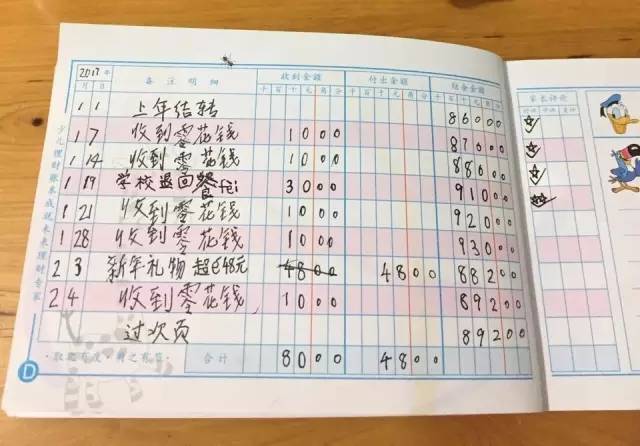 2017年 备注明细 收到金额 付出金额 结余金额
月 日 千 百 十 元 角 分 千 百 十 元 角 分 千 百 十 元 角 分
1 1 上年结转 86000
1 7 收到零花钱 1000 87000
1 14 收到零花钱 1000 88000
1 19 学校退回餐fei 3000 91000
1 21 收到零花钱 1000 92000
1 28 收到零花钱 1000 93000
2 3 新年礼物 48元 4800 4800 88200
2 4 收到零花钱 1000 89200
过次页 89200
合计 8000 4800
·取之有度·用之有节·
少儿理财账本成就未来理财专家
D
家长评价